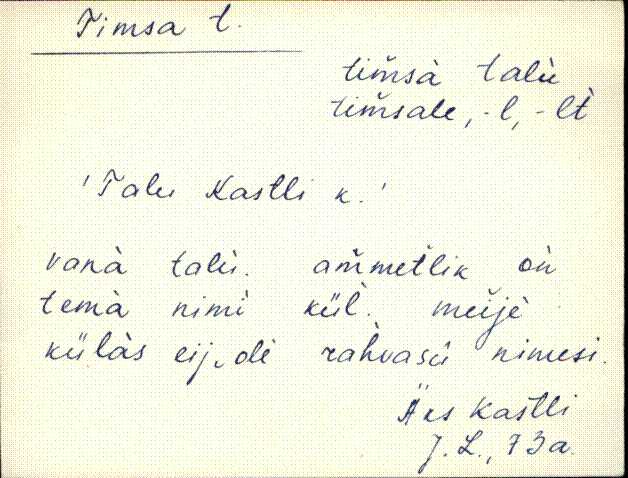 Timsa t.
tim̆sà talù
tim̆sale, -l, -lt̀
'Talu Kastli k.'
vanà talù. am̆metlik oǹ
temà nimì kül̀. meijè
külàs eij‿ole rahvasù nimesi.
Äks Kastli
J. L., 73a.